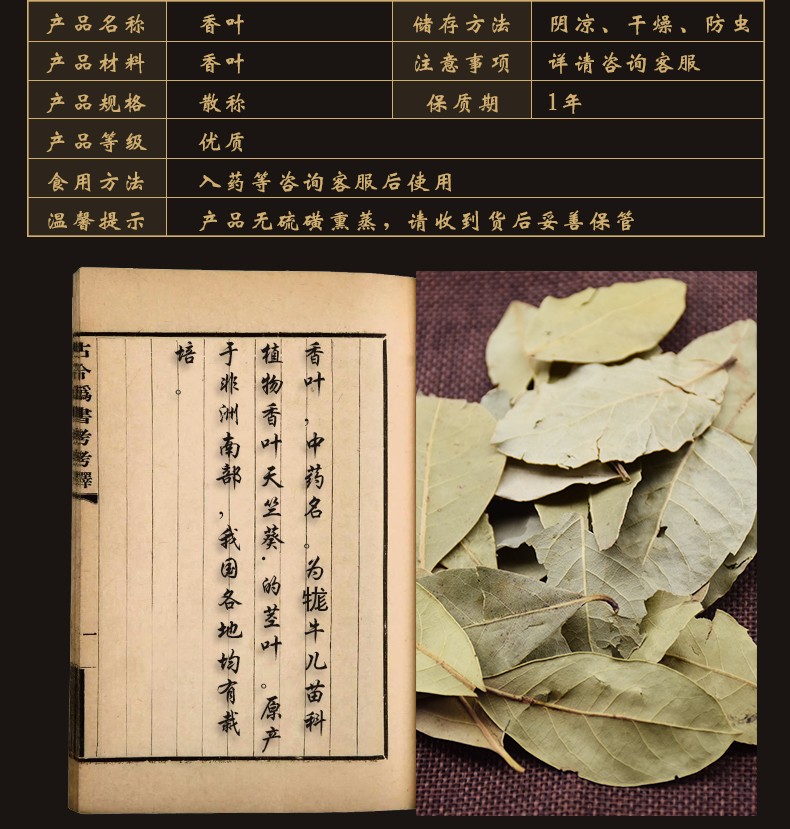 产品名称 香叶 储存方法 阴凉、干燥、防虫
产品材料 香叶 注意事项 详请咨询客服
产品规格 散称 保质期 1年
产品等级 优质
食用方法 入药等咨询客服后使用
温馨提示 产品无硫磺熏蒸，请收到货后妥善保管
香叶，中药名。为牻牛儿苗科
植物香叶天竺葵.的茎叶。原产
于非洲南部，我国各地均有栽
培。
古今爲書考考釋
一